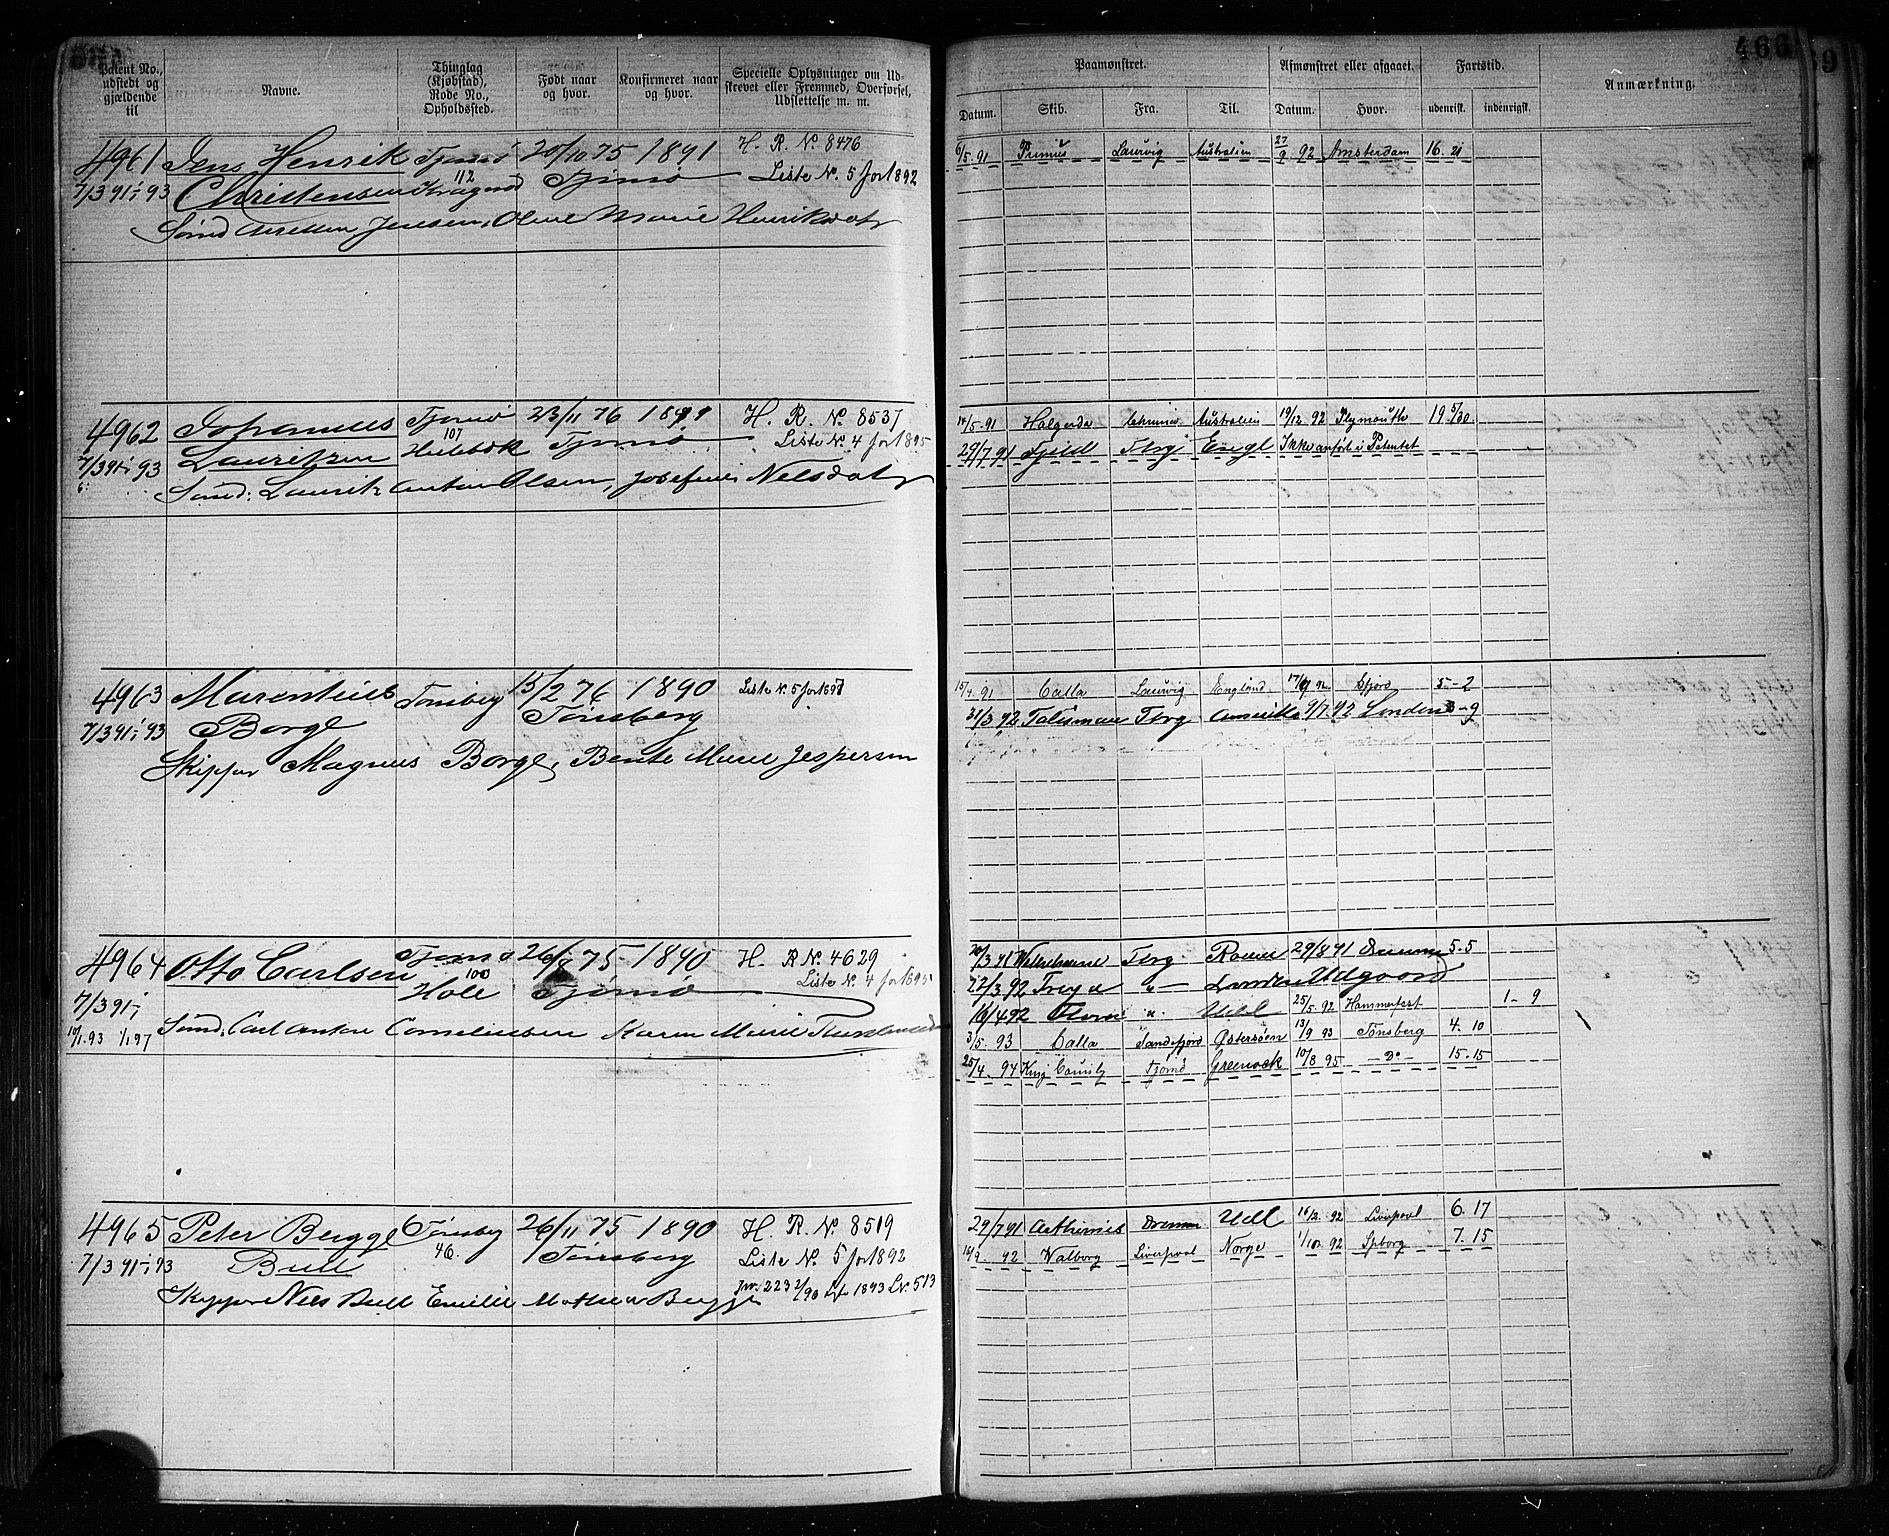 466
Patent No., udstedt og gjældende til
Navne.
Thinglag (Kjøbstad), Rode No., Opholdssted.
Født naar og hvor.
Konfirmeret naar og hvor.
Specielle Oplysninger om Udskrevet eller Fremmed, Overførsel, Udslettelse m. m.
Paamønstret.
Afmønstret eller afgaaet.
Fartstid.
Anmærkning.
Datum. Skib. Fra. Til. Datum. Hvor. udenrigst. indenrigst.
4961 Jens Henrik Tjømø 20/10 75 1891 H. R. No 8476
7/3 91 - 93 Christensen 112 Tjømø Liste No. 5 for 1892
Sømd Jensen, Oline Marie Henriksdatr
6/5. 91 Primus Laurvig Australien 27/9 92 Amsterdam 16. 21
4962 Johannes Tjømø 23/11 76 1891 H. R. No. 8537
7/3 91 - 93 Lauretzen 107 Tjømø Liste No. 4 for 1895
Sømd: Lauritz Anton Olsen, Josefine Nelsdatr
14/5. 91 Australien 19/12. 92 Plymouth 19 5/30
29/7 91 Fjeld Tbrg Engl Ikke anført i Patentet
4963 Marentius Tønsberg 15/2 76 1890 Liste No. 5 for 1897
7/3 91 - 93 Borge Tønsberg
Skipper Magnus Borge, Bente Marie Jespersen
15/4. 91 Calla Laurvig England 5 - 2
31/3 92 Talisman Tbrg Amerika 9/7. 92 London 3 - 9
4964 Otto Carlsen Tjømø 26/ 75 1890 H. R No. 4629
7/3 91 - 100 Hole Tjømø Liste No. 4 for 1895
10/1. 93 1/1 97 Sømd. Carl Anton Corneliussen Karen Marie
/3 91 Tbrg Rouen 29/8 91 Drammen 5. 5
27/3. 92 Freya " London Udgaard
16/4 92 " Udl 25/5. 92 Hammerfest 1 - 9
3/5. 93 Calla Sandefjord Østersøen 13/9 93 Tønsberg 4. 10
25/4. 94 King Tjømø Greenock 10/8 95 - Do - 15. 15
4965 Peter Bugge Tønsberg 26/11 75 1890 H. R. No. 8519
7/3 91 - 93 Bull 46. Tønsberg Liste No. 5 for 1892
Skipper Niels Bull Emilie Mathea Bugge
29/7 91 Drammen Udl 92 Liverpool 6. 17
92 Valborg Liverpool Norge 1/10. 92 Spborg 7. 15